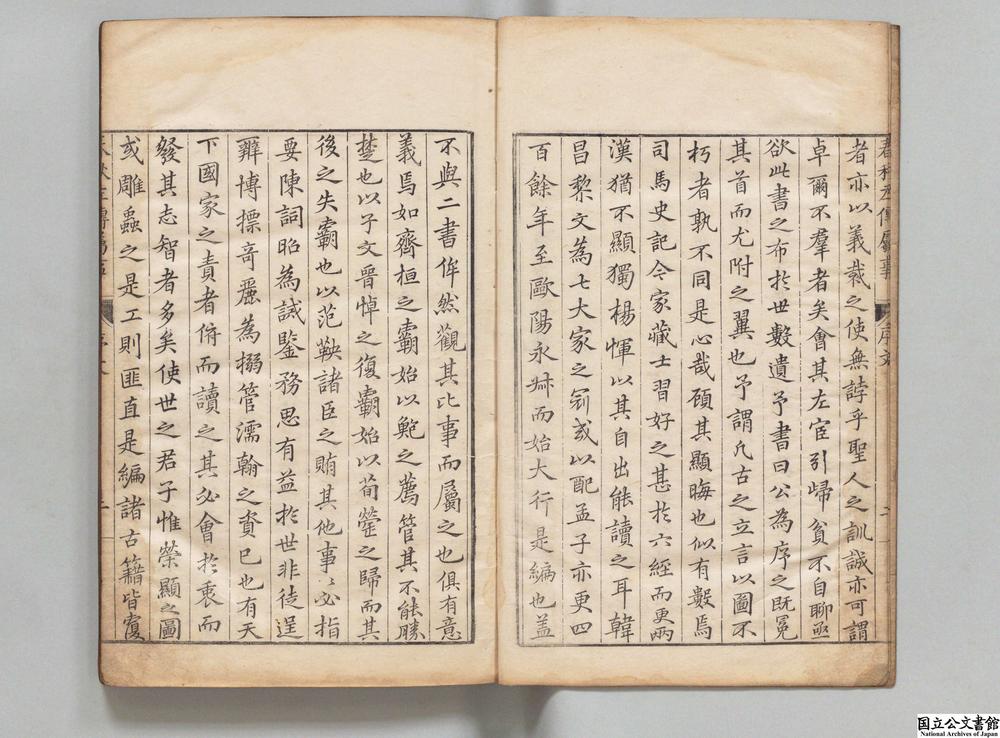 春秋左傳屬事
序文
二
者亦以義裁之使無誖乎聖人之訓誠亦可謂
卓爾不羣者矣會其左宦引歸貧不自聊亟
欲此書之布於世數遺予書曰公為序之既冕
其首而尤附之翼也予謂凡古之立言以圖不
朽者孰不同是心哉顧其顯晦也似有數焉
司馬史記今家藏士習好之甚於六經而更兩
漢猶不顯獨楊惲以其自出能讀之耳韓
昌黎文為七大家之冠或以配孟子亦更四
百餘年至歐陽永叔而始大行是編也蓋
不與二書侔然觀其比事而屬之也俱有意
義焉如齊桓之霸始以鮑之薦管其不能勝
楚也以子文晉悼之復霸始以荀罃之歸而其
後之失霸也以范鞅諸臣之賄其他事〻必指
要陳詞昭為誡鑒務思有益於世非徒逞
辯博摽奇麗為搦管濡翰之資已也有天
下國家之責者俯而讀之其必會於衷而
發其志智者多矣使世之君子惟榮顯之圖
或雕蟲之是工則匪直是編諸古籍皆覆
国立公文書館
National Archives of Japan